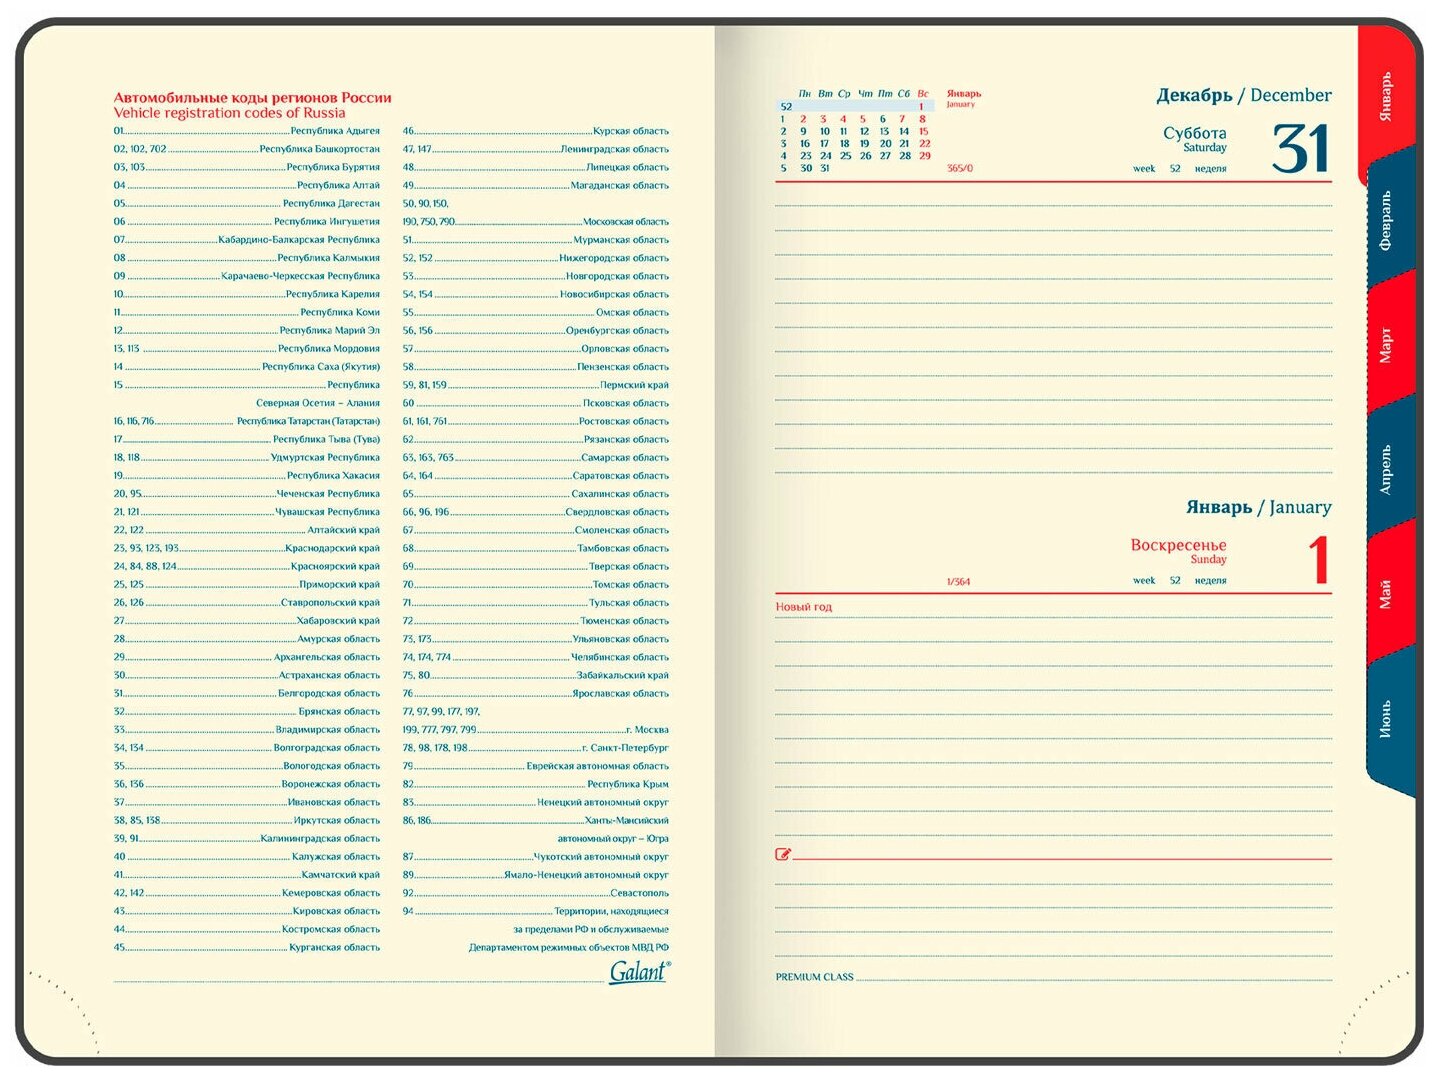 Автомобильные коды регионов России
Vehicle registration codes of Russia
01 Республика Адыгея
02, 102, 702 Республика Башкортостан
03, 103 Республика Бурятия
04 Республика Алтай
05 Республика Дагестан
06 Республика Ингушетия
07 Кабардино-Балкарская Республика
08 Республика Калмыкия
09 Карачаево-Черкесская Республика
10 Республика Карелия
11 Республика Коми
12 Республика Марий Эл
13, 113 Республика Мордовия
14 Республика Саха (Якутия)
15 Республика
Северная Осетия – Алания
16, 116, 716 Республика Татарстан (Татарстан)
17 Республика Тыва (Тува)
18, 118 Удмуртская Республика
19 Республика Хакасия
20, 95 Чеченская Республика
21, 121 Чувашская Республика
22, 122 Алтайский край
23, 93, 123, 193 Краснодарский край
24, 84, 88, 124 Красноярский край
25, 125 Приморский край
26, 126 Ставропольский край
27 Хабаровский край
28 Амурская область
29 Архангельская область
30 Астраханская область
31 Белгородская область
32 Брянская область
33 Владимирская область
34, 134 Волгоградская область
35 Вологодская область
36, 136 Воронежская область
37 Ивановская область
38, 85, 138 Иркутская область
39, 91 Калининградская область
40 Калужская область
41 Камчатский край
42, 142 Кемеровская область
43 Кировская область
44 Костромская область
45 Курганская область
46 Курская область
47, 147 Ленинградская область
48 Липецкая область
49 Магаданская область
50, 90, 150,
190, 750, 790 Московская область
51 Мурманская область
52, 152 Нижегородская область
53 Новгородская область
54, 154 Новосибирская область
55 Омская область
56, 156 Оренбургская область
57 Орловская область
58 Пензенская область
59, 81, 159 Пермский край
60 Псковская область
61, 161, 761 Ростовская область
62 Рязанская область
63, 163, 763 Самарская область
64, 164 Саратовская область
65 Сахалинская область
66, 96, 196 Свердловская область
67 Смоленская область
68 Тамбовская область
69 Тверская область
70 Томская область
71 Тульская область
72 Тюменская область
73, 173 Ульяновская область
74, 174, 774 Челябинская область
75, 80 Забайкальский край
76 Ярославская область
77, 97, 99, 177, 197,
199, 777, 797, 799 г. Москва
78, 98, 178, 198 г. Санкт-Петербург
79 Еврейская автономная область
82 Республика Крым
83 Ненецкий автономный округ
86, 186 Ханты-Мансийский
автономный округ – Югра
87 Чукотский автономный округ
89 Ямало-Ненецкий автономный округ
92 Севастополь
94 Территории, находящиеся
за пределами РФ и обслуживаемые
Департаментом режимных объектов МВД РФ
Galant®
Пн Вт Ср Чт Пт Сб Вс
52 1
1 2 3 4 5 6 7 8
2 9 10 11 12 13 14 15
3 16 17 18 19 20 21 22
4 23 24 25 26 27 28 29
5 30 31
Январь
January
365/0
Декабрь / December
Суббота
Saturday
31
week 52 неделя
Январь / January
Воскресенье
Sunday
1
1/364
week 52 неделя
Новый год
PREMIUM CLASS
Январь
Февраль
Март
Апрель
Май
Июнь